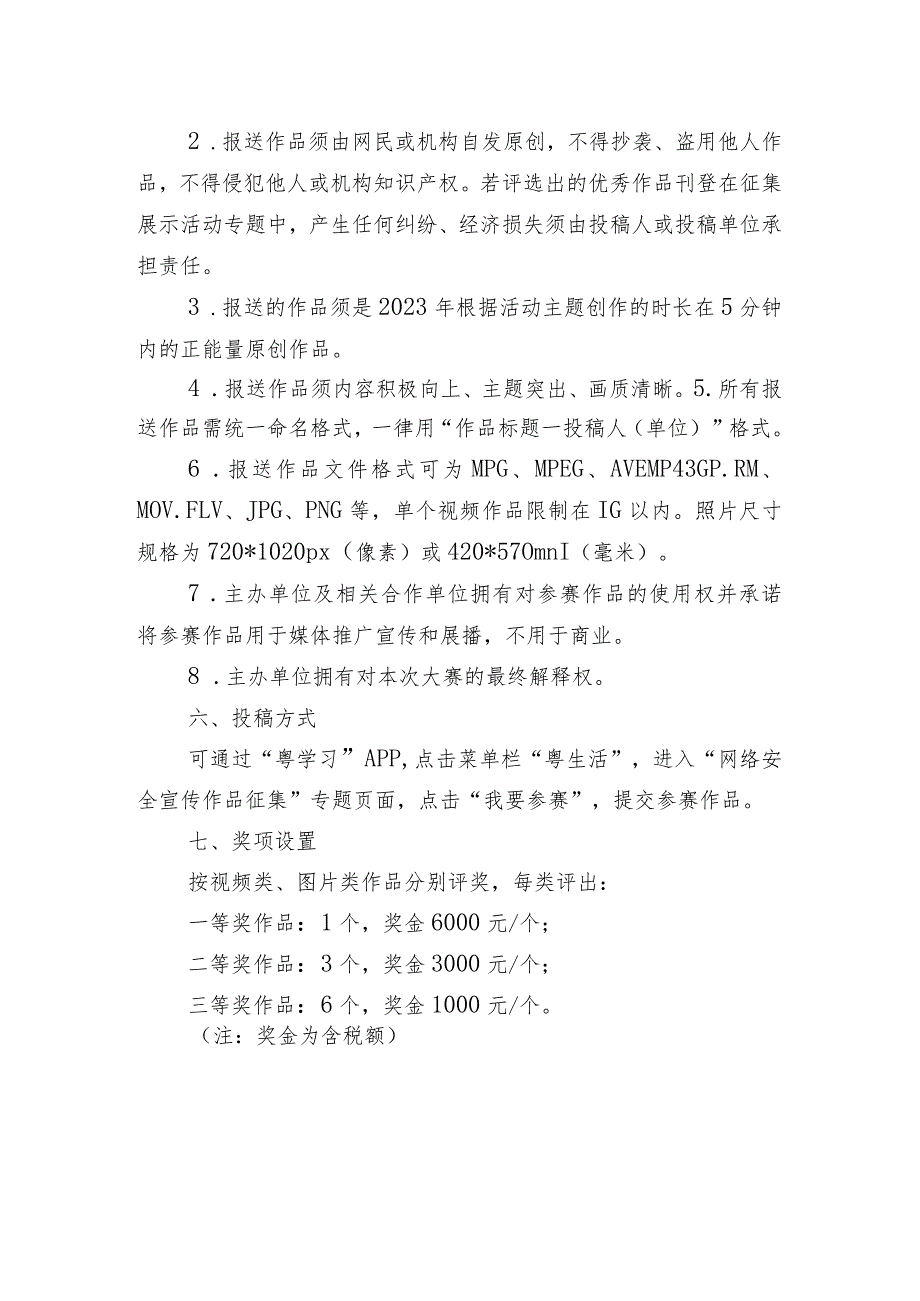 2 .报送作品须由网民或机构自发原创，不得抄袭、盗用他人作
品，不得侵犯他人或机构知识产权。若评选出的优秀作品刊登在征集
展示活动专题中，产生任何纠纷、经济损失须由投稿人或投稿单位承
担责任。
3 .报送的作品须是 2023 年根据活动主题创作的时长在 5 分钟
内的正能量原创作品。
4 .报送作品须内容积极向上、主题突出、画质清晰。5.所有报
送作品需统一命名格式，一律用“作品标题一投稿人（单位）”格式。
6 .报送作品文件格式可为 MPG、MPEG、AVEMP43GP.RM、
MOV.FLV、JPG、PNG 等，单个视频作品限制在 IG 以内。照片尺寸
规格为 720*1020px（像素）或 420*570mnI（毫米）。
7 .主办单位及相关合作单位拥有对参赛作品的使用权并承诺
将参赛作品用于媒体推广宣传和展播，不用于商业。
8 .主办单位拥有对本次大赛的最终解释权。
六、投稿方式
可通过“粤学习”APP,点击菜单栏“粤生活”，进入“网络安
全宣传作品征集”专题页面，点击“我要参赛”，提交参赛作品。
七、奖项设置
按视频类、图片类作品分别评奖，每类评出：
一等奖作品：1 个，奖金 6000 元/个；
二等奖作品：3 个，奖金 3000 元/个；
三等奖作品：6 个，奖金 1000 元/个。
（注：奖金为含税额）